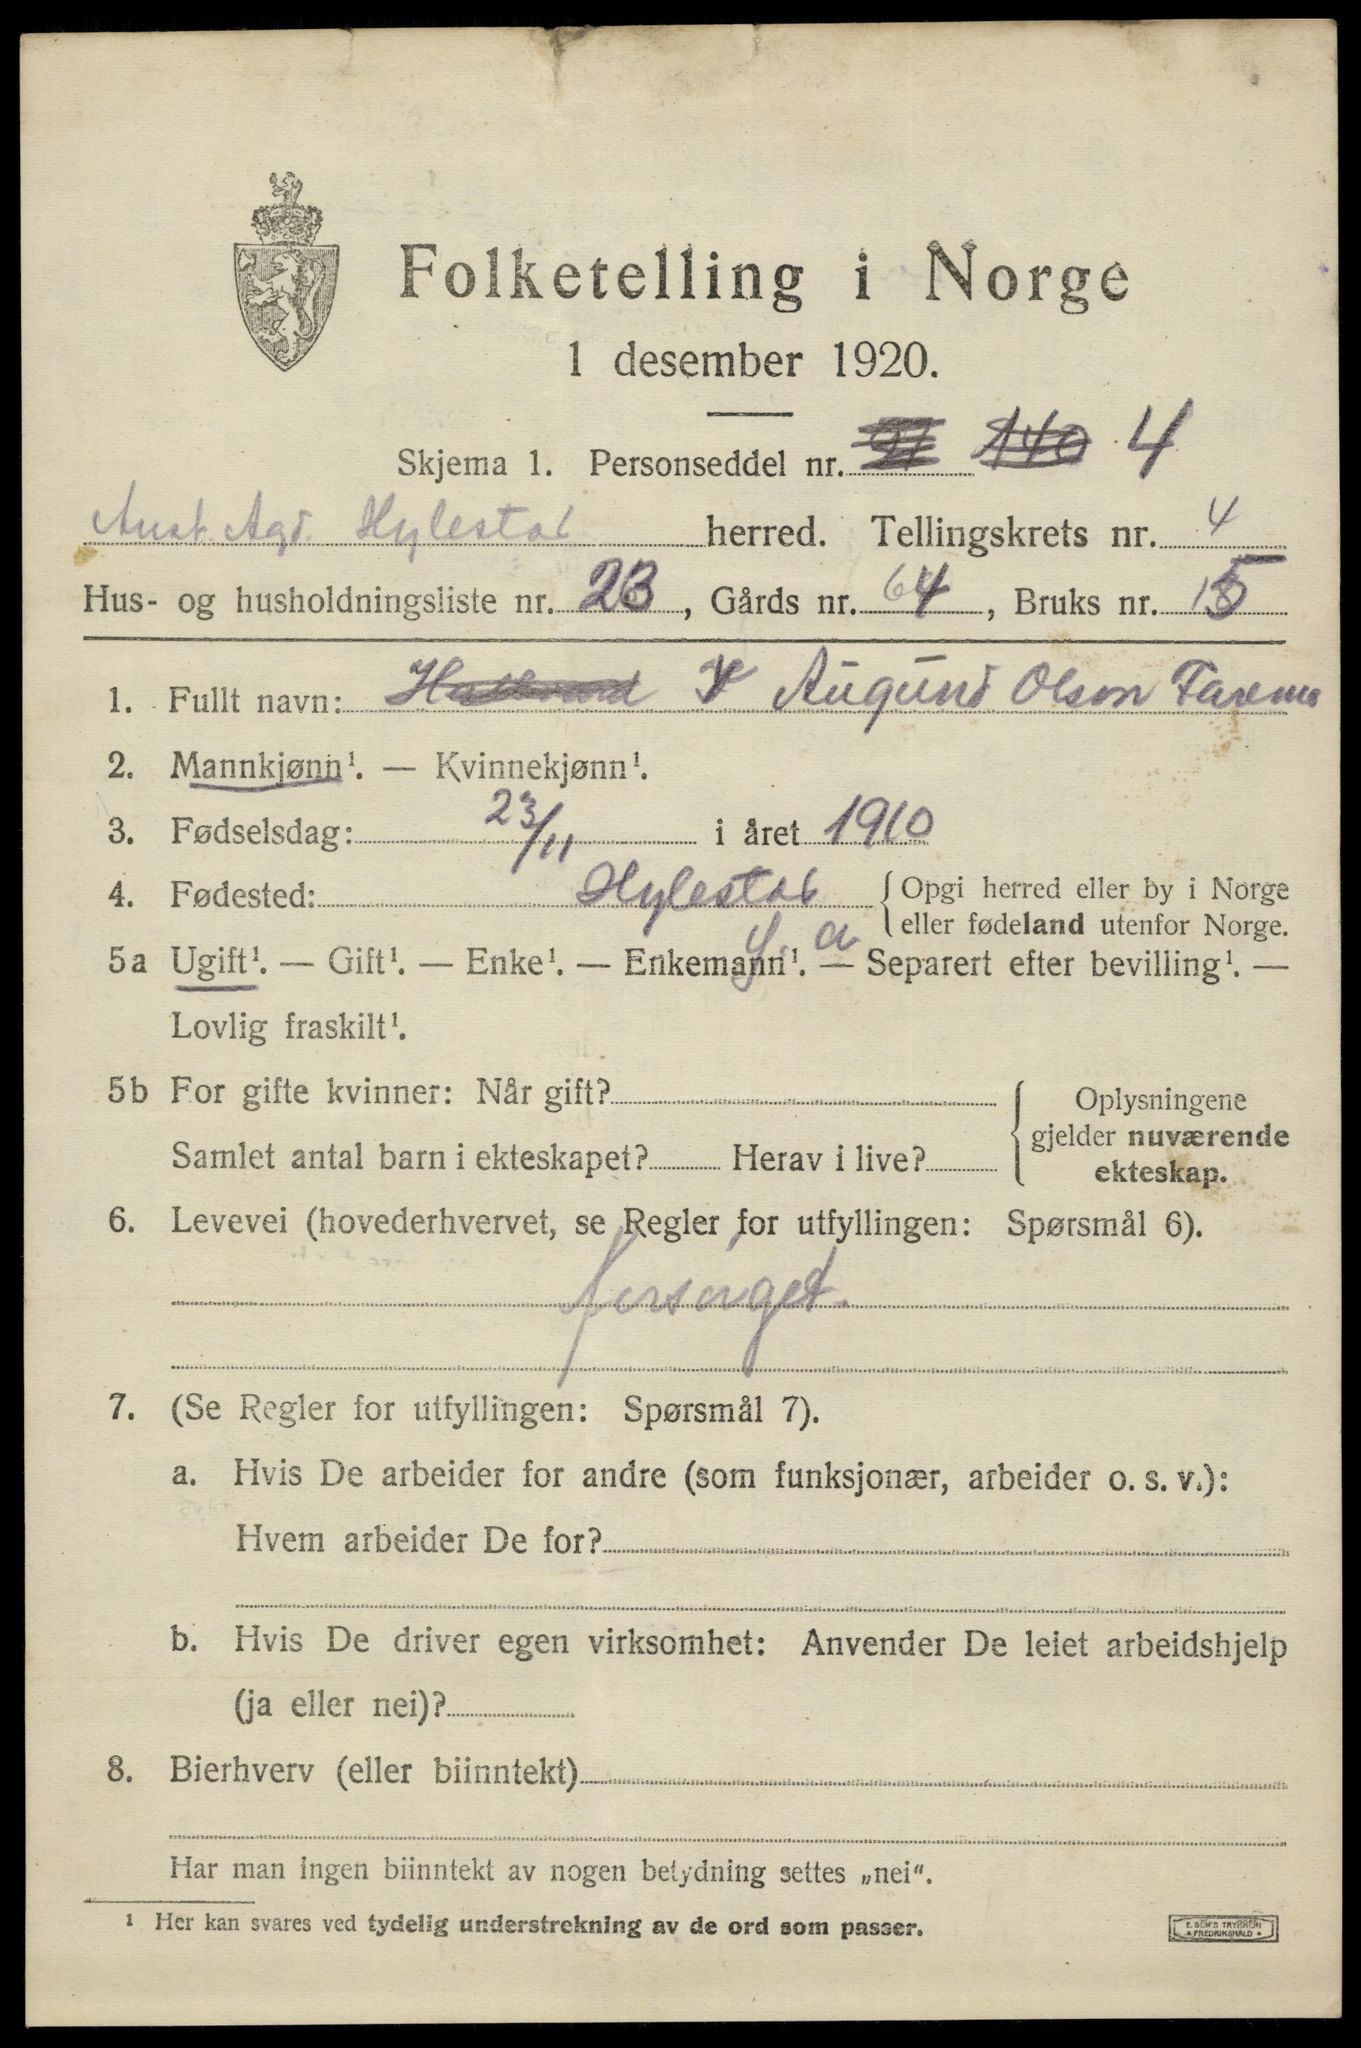 Folketelling i Norge
1 desember 1920.
Skjema 1. Personseddel nr. 91 140 4
Aust. Agd. Hylestad herred. Tellingskrets nr. 4
Hus- og husholdningsliste nr. 23, Gårds nr. 64, Bruks nr. 15
1. Fullt navn: Hallvard Augund Olson
2. Mannkjønn¹. — Kvinnekjønn¹.
3. Fødselsdag: 23/11 i året 1910
4. Fødested: Hylestad { Opgi herred eller by i Norge
eller fødeland utenfor Norge.
y. a
5a Ugift¹. — Gift¹. — Enke¹. — Enkemann¹. — Separert efter bevilling¹. —
Lovlig fraskilt¹.
5b For gifte kvinner: Når gift?
Samlet antal barn i ekteskapet? Herav i live?
Oplysningene
gjelder nuværende
ekteskap.
6. Levevei (hovederhvervet, se Regler for utfyllingen: Spørsmål 6).
forsørget.
7. (Se Regler for utfyllingen: Spørsmål 7).
a. Hvis De arbeider for andre (som funksjonær, arbeider o. s. v.):
Hvem arbeider De for?
b. Hvis De driver egen virksomhet: Anvender De leiet arbeidshjelp
(ja eller nei)?
8. Bierhverv (eller biinntekt)
Har man ingen biinntekt av nogen betydning settes „nei“.
¹ Her kan svares ved tydelig understrekning av de ord som passer.
E. SEM'S TRYKKERI
FREDRIKSHALD